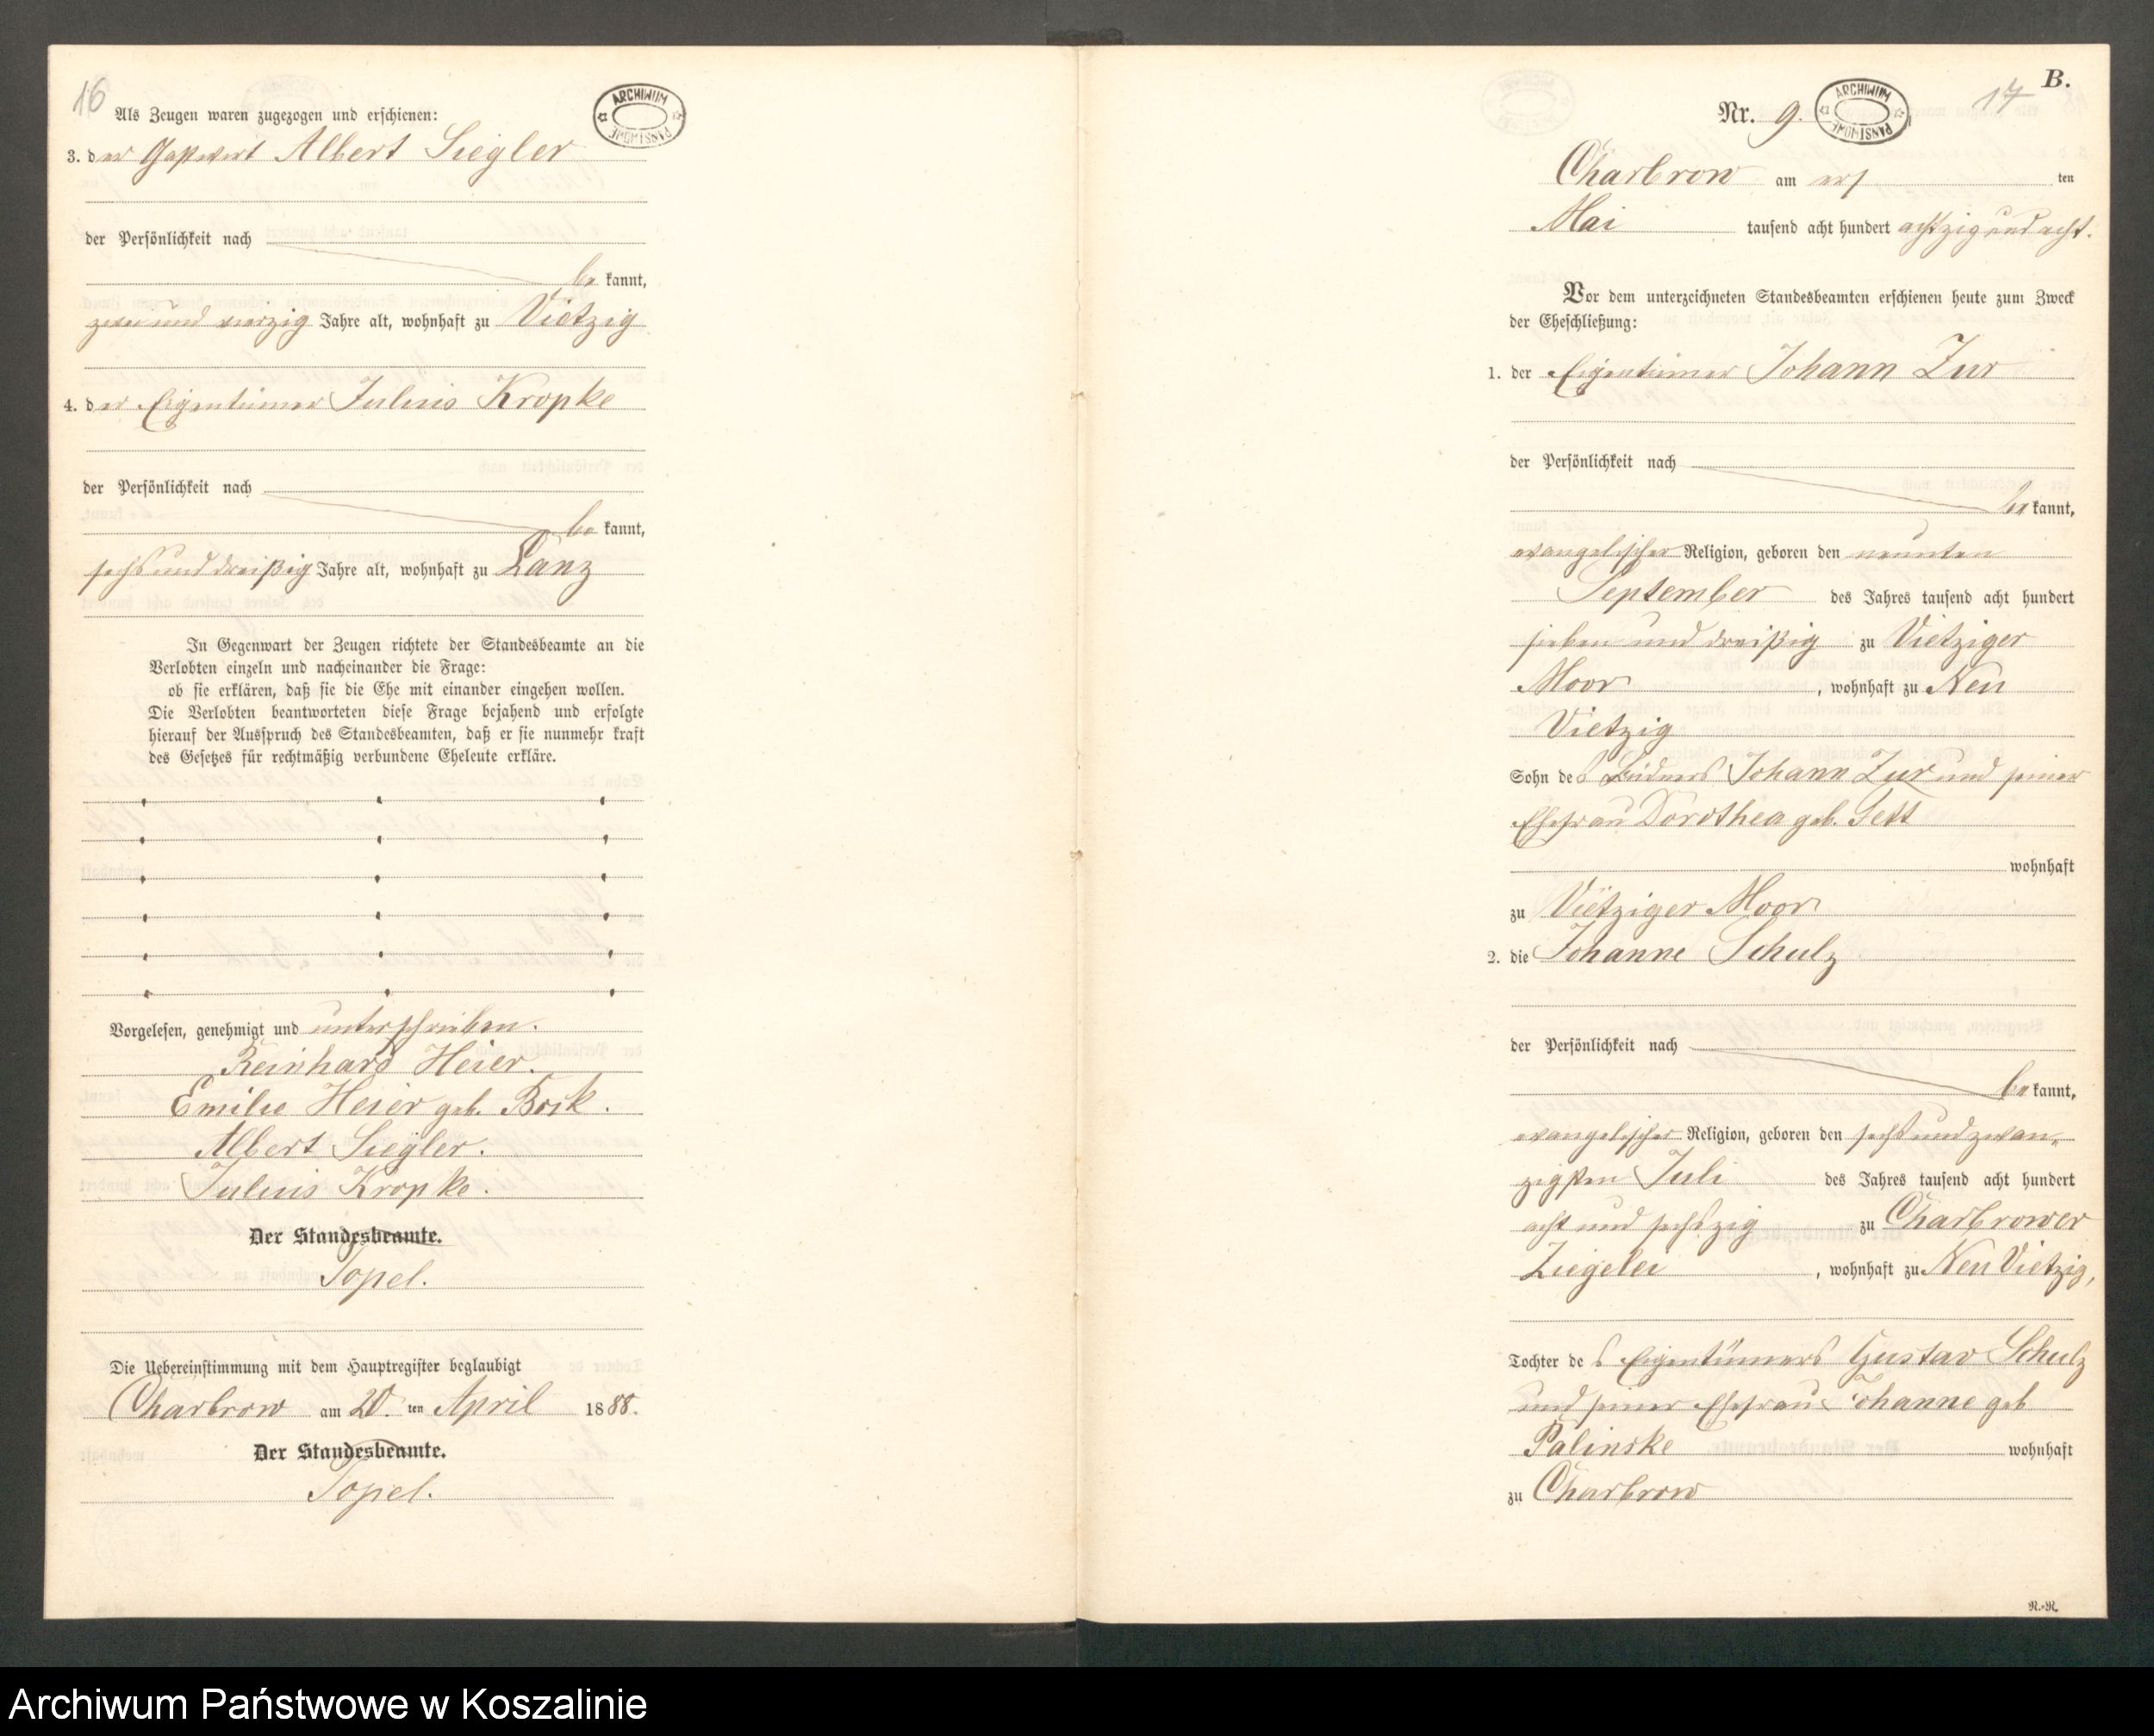 16
Als Zeugen waren zugezogen und erschienen:
ARCHIWUM PAŃSTWOWE
3. der Gastwirt Albert Siegler
der Persönlichkeit nach
be kannt,
zwei und vierzig Jahre alt, wohnhaft zu Vietzig
4. der Eigentümer Julius Kropke
der Persönlichkeit nach
be kannt,
sechs und dreißig Jahre alt, wohnhaft zu Lanz
In Gegenwart der Zeugen richtete der Standesbeamte an die
Verlobten einzeln und nacheinander die Frage:
ob sie erklären, daß sie die Ehe mit einander eingehen wollen.
Die Verlobten beantworteten diese Frage bejahend und erfolgte
hierauf der Ausspruch des Standesbeamten, daß er sie nunmehr kraft
des Gesetzes für rechtmäßig verbundene Eheleute erkläre.
Vorgelesen, genehmigt und unterschrieben.
Reinhard Heier.
Emilie Heier geb. Bork.
Albert Siegler.
Julius Kropke.
Der Standesbeamte.
Topel.
Die Uebereinstimmung mit dem Hauptregister beglaubigt
Charbrow am 20. ten April 1888.
Der Standesbeamte.
Topel.
B.
17
Nr. 9.
ARCHIWUM PAŃSTWOWE
Charbrow am ers ten
Mai tausend acht hundert achtzig und acht.
Vor dem unterzeichneten Standesbeamten erschienen heute zum Zweck
der Eheschließung:
1. der Eigentümer Johann Zur
der Persönlichkeit nach
be kannt,
evangelischer Religion, geboren den neunten
September des Jahres tausend acht hundert
sieben und dreißig zu Vietziger
Moor, wohnhaft zu Neu
Vietzig
Sohn des Büdners Johann Zur und seiner
Ehefrau Dorothea geb. Tett
wohnhaft
zu Vietziger Moor
2. die Johanne Schulz
der Persönlichkeit nach
be kannt,
evangelischer Religion, geboren den sechs und zwan-
zigsten Juli des Jahres tausend acht hundert
acht und sechszig zu Charbrower
Ziegelei, wohnhaft zu Neu Vietzig,
Tochter des Eigentümers Gustav Schulz
und seiner Ehefrau Johanne geb
Palinske wohnhaft
zu Charbrow
N.-N.
Archiwum Państwowe w Koszalinie